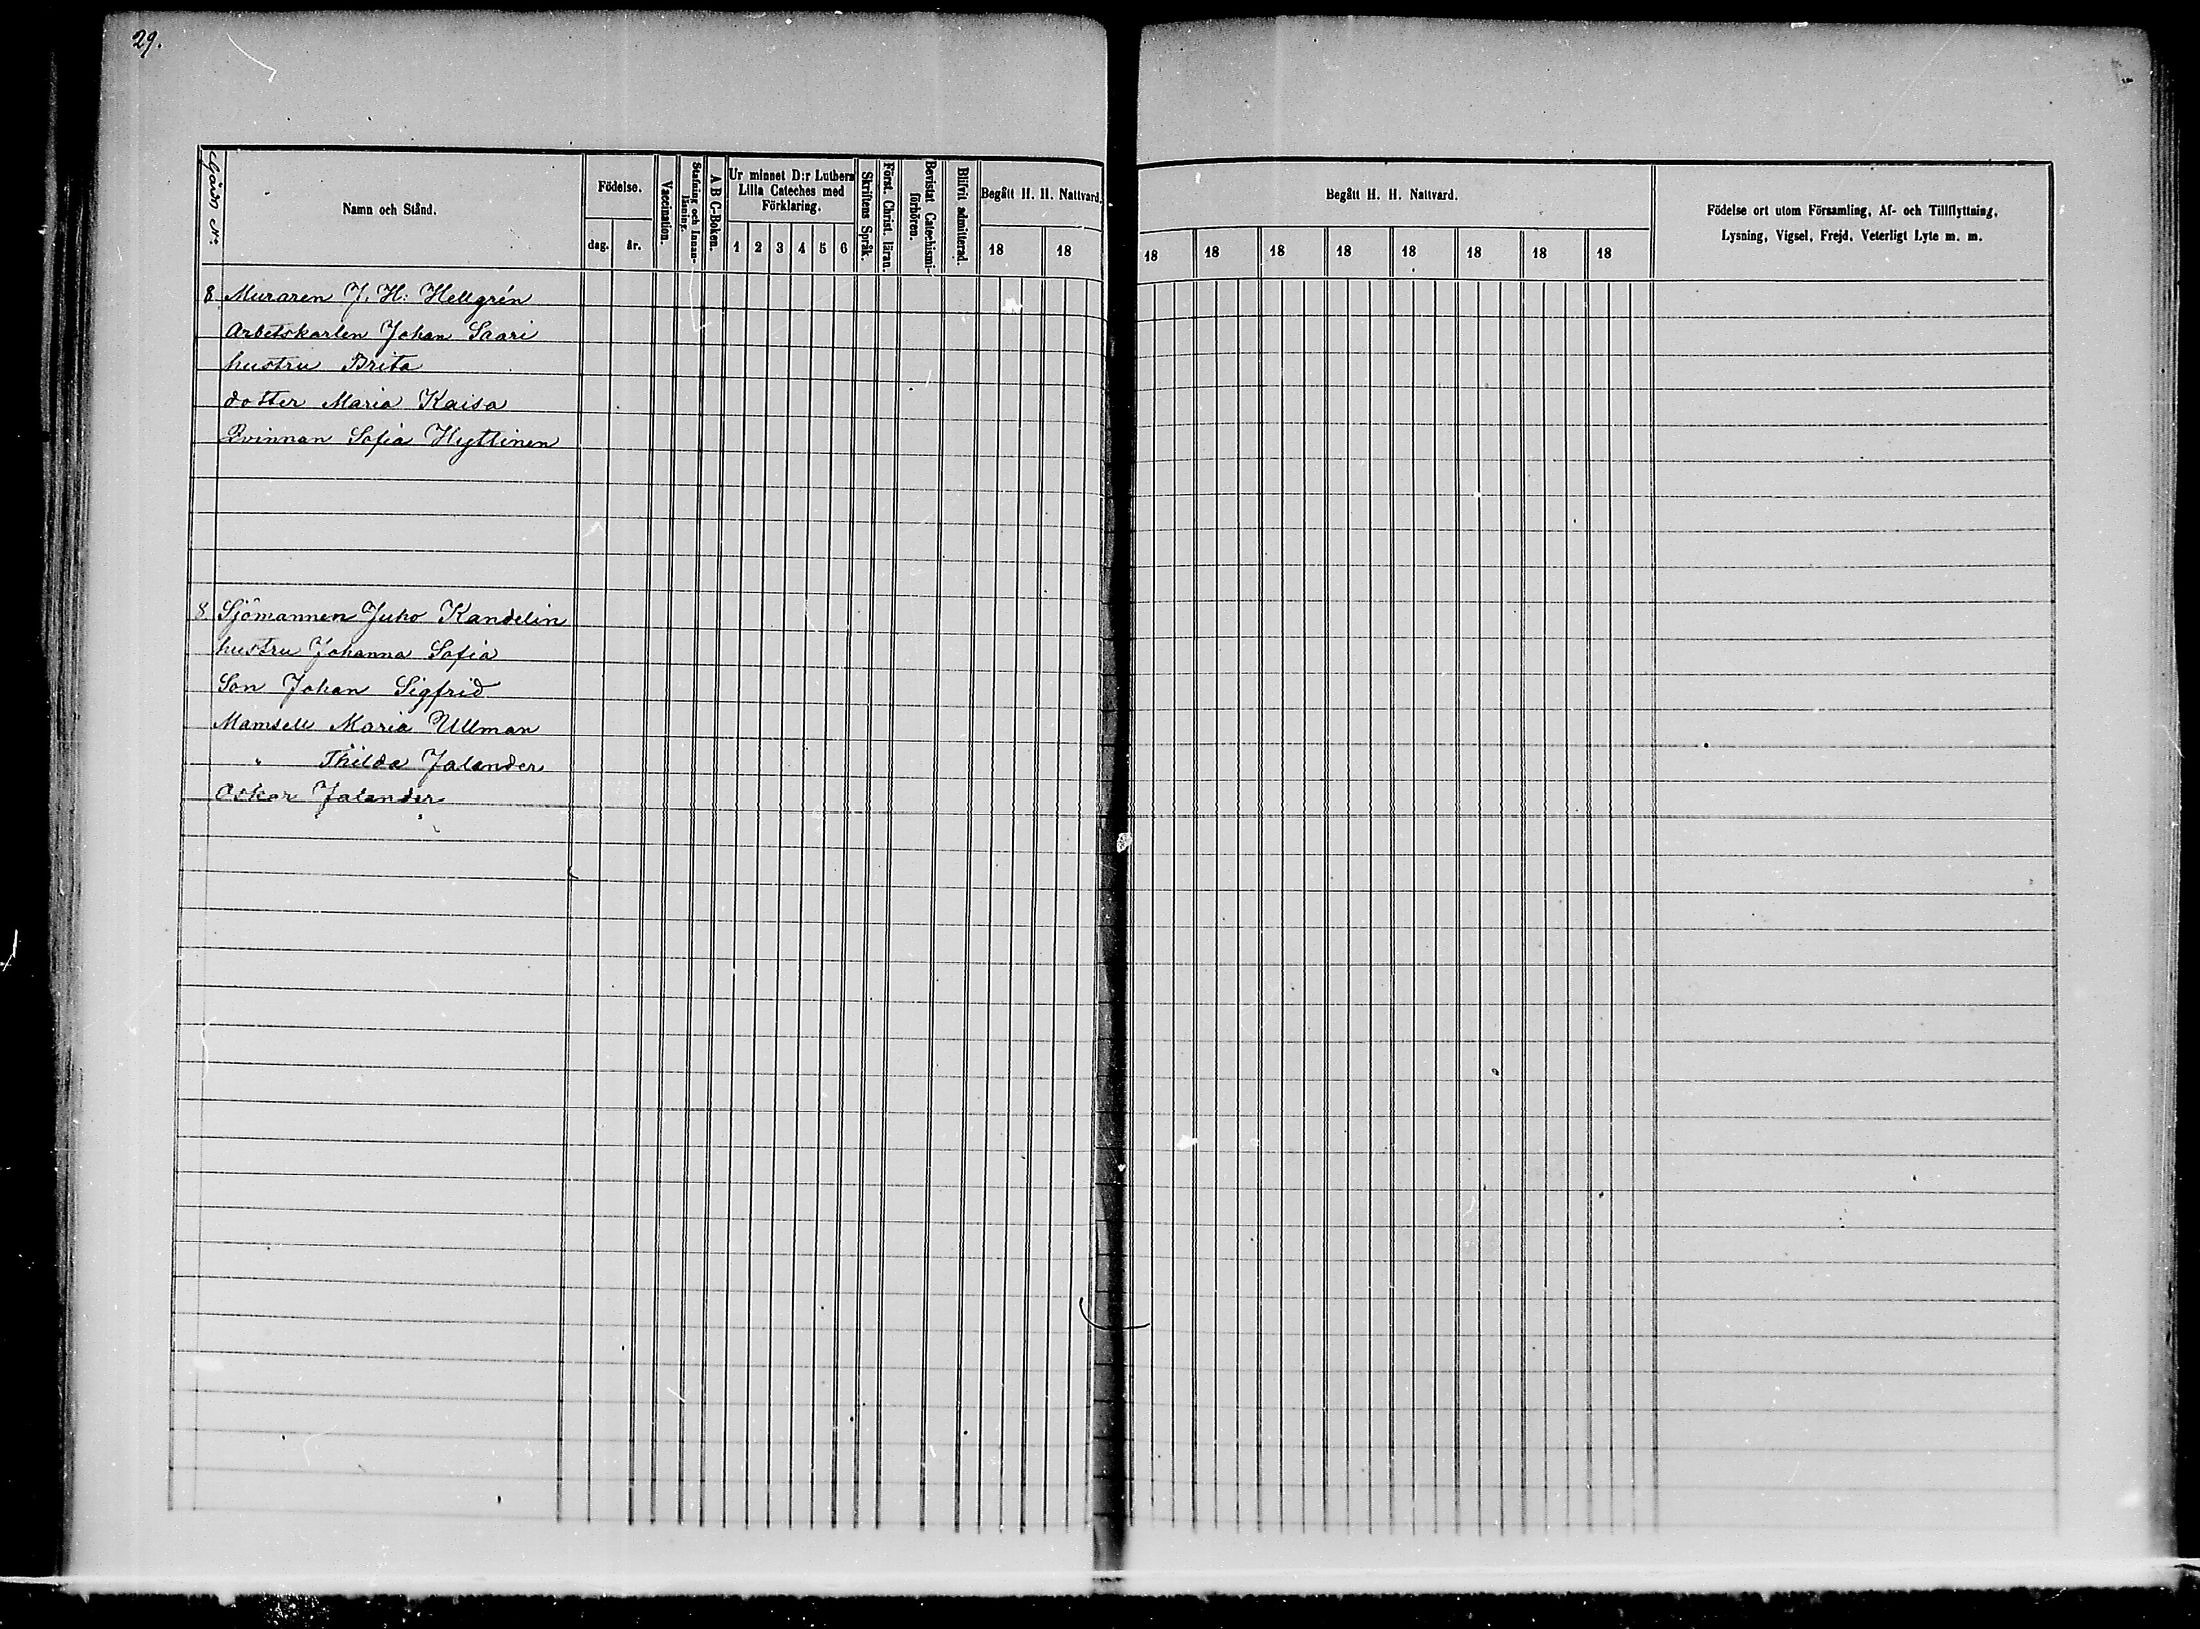 29.
Gårds No.
Namn och Stånd.
Födelse.
dag.
år.
Vaccination.
Stafning och Innan-
läsning.
A B C-Boken.
Ur minnet D:r Luthers
Lilla Cateches med
Förklaring.
1 2 3 4 5 6
Skriftens Språk.
Först. Christ. läran.
Bevistat Catechismi-
förhören.
Blifvit admitterad.
Begått H. H. Nattvard.
18 18
Begått H. H. Nattvard.
18 18 18 18 18 18 18 18
Födelse ort utom Församling, Af- och Tillflyttning,
Lysning, Vigsel, Frejd, Veterligt Lyte m. m.
8 Muraren J. H: Hellgrén
Arbetskarlen Johan Saari
hustru Brita
dotter Maria Kaisa
Qvinnan Sofia Hyttinen
8. Sjömannen Juho Kandelin
hustru Johanna Sofia
Son Johan Sigfrid
Mamsell Maria Ullman
" Thilda Jalander
Oskar Jalander